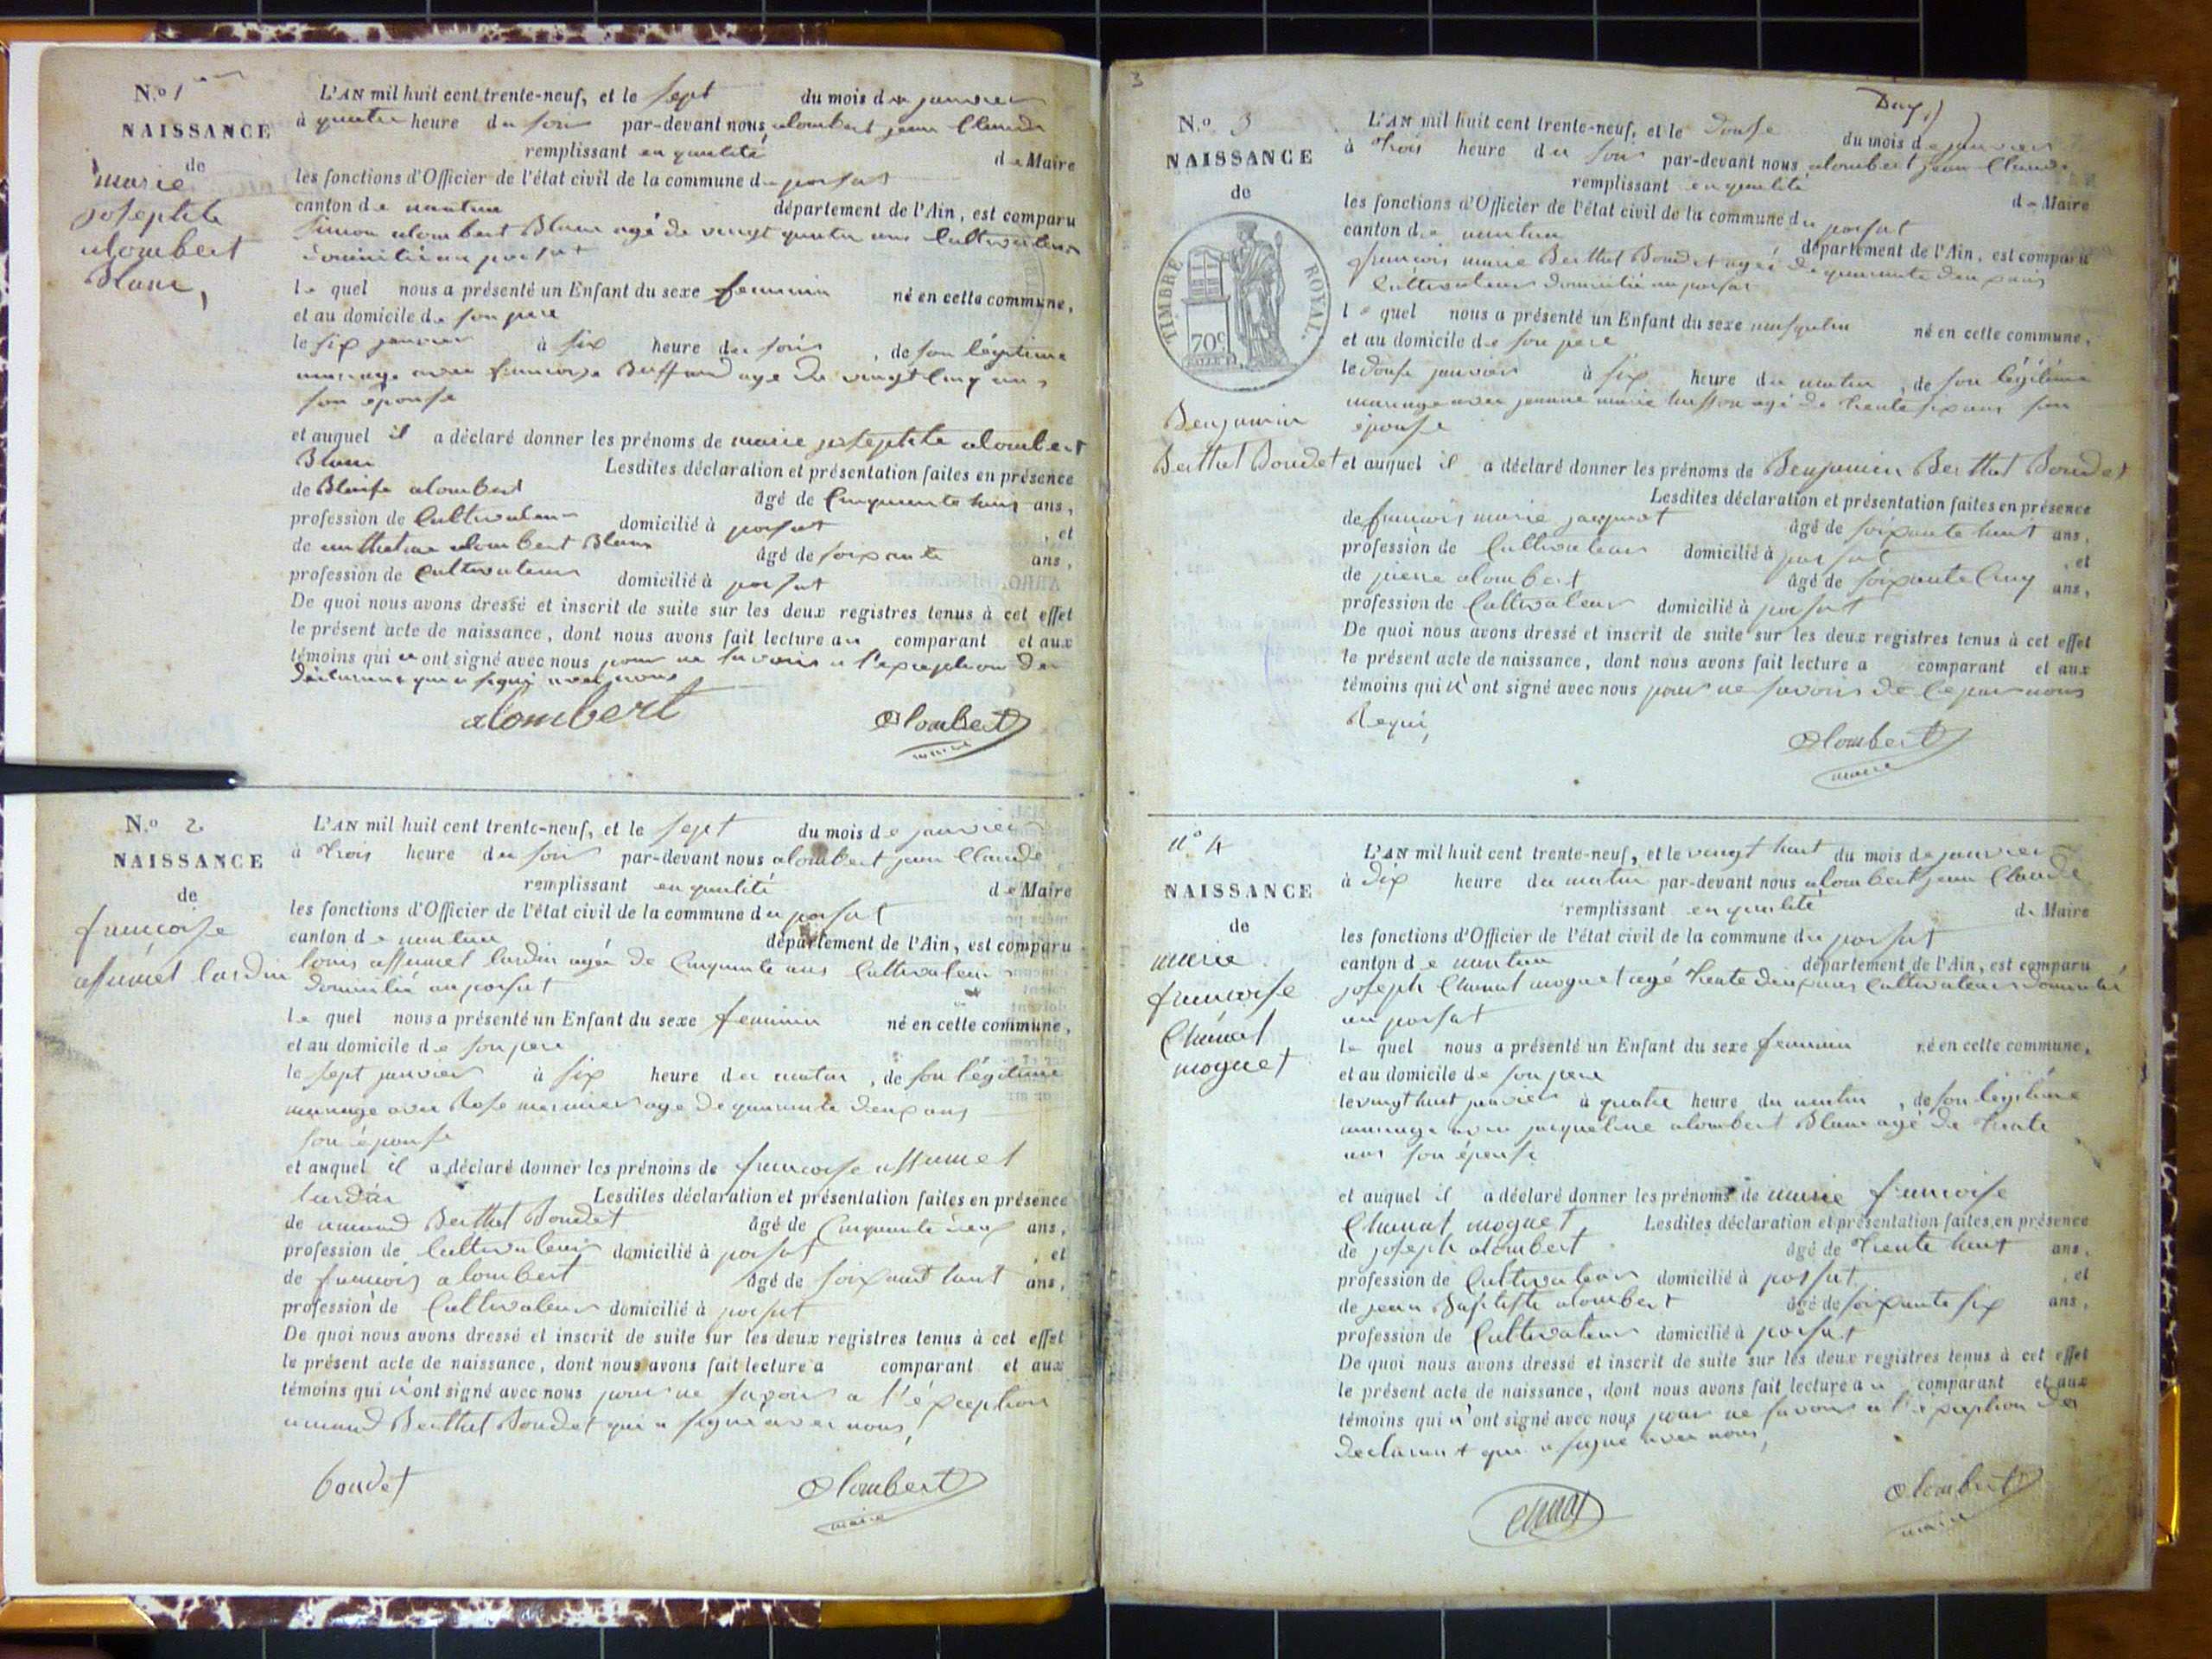 N.o 1
NAISSANCE
de
marie
josephte
alombert
Blanc,
L'AN mil huit cent trente-neuf, et le sept du mois de janvier
à quatre heure du soir par-devant nous alombert jean Claude
remplissant en qualité de Maire
les fonctions d'Officier de l'état civil de la commune du porsat
canton de nantua département de l'Ain, est comparu
Simon alombert Blanc agé de vingt quatre ans Cultivateur
domicilié au porsat
le quel nous a présenté un Enfant du sexe feminin né en cette commune,
et au domicile de son pere
le six janvier à six heure du soir, de son légitime
mariage avec françoise Buffard agé de vingt Cinq ans
son épouse
et auquel il a déclaré donner les prénoms de marie josephte alombert
Blanc Lesdites déclaration et présentation faites en présence
de Blaise alombert âgé de Cinquante huit ans,
profession de Cultivateur domicilié à porsat, et
de anthelme alombert Blanc âgé de soixante ans,
profession de Cultivateur domicilié à porsat
De quoi nous avons dressé et inscrit de suite sur les deux registres tenus à cet effet
le présent acte de naissance, dont nous avons fait lecture au comparant et aux
témoins qui n'ont signé avec nous pour ne savoir a l'exception du
déclarant qui a signé avec nous
alombert alombert
maire
N.o 2
NAISSANCE
de
françoise
assumel lurdin
L'AN mil huit cent trente-neuf, et le sept du mois de janvier
à trois heure du soir par-devant nous alombert jean Claude
remplissant en qualité de Maire
les fonctions d'Officier de l'état civil de la commune du porsat
canton de nantua département de l'Ain, est comparu
louis assumel lurdin agé de Cinquante ans Cultivateur
domicilié au porsat
le quel nous a présenté un Enfant du sexe feminin né en cette commune,
et au domicile de son pere
le sept janvier à six heure du matin, de son légitime
mariage avec Rose marinier age de quarante deux ans
son épouse
et auquel il a déclaré donner les prénoms de françoise assumel
lurdin Lesdites déclaration et présentation faites en présence
de amand Berthet Boudet âgé de Cinquante deux ans,
profession de Cultivateur domicilié à porsat, et
de françois alombert âgé de soixante huit ans,
profession de Cultivateur domicilié à porsat
De quoi nous avons dressé et inscrit de suite sur les deux registres tenus à cet effet
le présent acte de naissance, dont nous avons fait lecture a comparant et aux
témoins qui n'ont signé avec nous pour ne savoir a l'éxception
amand Berthet Boudet qui a signé avec nous,
boudet alombert
maire
3
N.o 3
NAISSANCE
de
TIMBRE ROYAL.
70c
Benjamin
Berthet Boudet
L'AN mil huit cent trente-neuf, et le douse du mois de janvier
à trois heure du soir par-devant nous alombert jean Claude
remplissant en qualité de Maire
les fonctions d'Officier de l'état civil de la commune du porsat
canton de nantua département de l'Ain, est comparu
françois marie Berthet Boudet agé de quarante deux ans
Cultivateur domicilié au porsat
le quel nous a présenté un Enfant du sexe masqulin né en cette commune,
et au domicile de son pere
le douse janvier à six heure du matin, de son légitime
mariage avec jeanne marie husson agé de trente six ans son
épouse
et auquel il a déclaré donner les prénoms de Benjamin Berthet Boudet
Lesdites déclaration et présentation faites en présence
de françois marie jacquot âgé de soixante huit ans,
profession de Cultivateur domicilié à porsat, et
de pierre alombert âgé de soixante Cinq ans,
profession de Cultivateur domicilié à porsat
De quoi nous avons dressé et inscrit de suite sur les deux registres tenus à cet effet
le présent acte de naissance, dont nous avons fait lecture a comparant et aux
témoins qui n'ont signé avec nous pour ne savoir de Ce par nous
Requi,
alombert
maire
n° 4
NAISSANCE
de
marie
françoise
Chanal
moguet
L'AN mil huit cent trente-neuf, et le vingt huit du mois de janvier
à dix heure du matin par-devant nous alombert jean Claude
remplissant en qualité de Maire
les fonctions d'Officier de l'état civil de la commune du porsat
canton de nantua département de l'Ain, est comparu
joseph Chanal moguet agé trente deux ans Cultivateur domicilié
au porsat
le quel nous a présenté un Enfant du sexe feminin né en cette commune,
et au domicile de son pere
le vingt huit janvier à quatre heure du matin, de son légitime
mariage avec jacqueline alombert Blanc agé de trente
ans son épouse
et auquel il a déclaré donner les prénoms de marie françoise
Chanal moguet, Lesdites déclaration et présentation faites en présence
de joseph alombert âgé de trente huit ans,
profession de Cultivateur domicilié à porsat, et
de jean Baptiste alombert âgé de soixante six ans,
profession de Cultivateur domicilié à porsat
De quoi nous avons dressé et inscrit de suite sur les deux registres tenus à cet effet
le présent acte de naissance, dont nous avons fait lecture au comparant et aux
témoins qui n'ont signé avec nous pour ne savoir a l'exception du
declarant qui a signé avec nous,
alombert
maire